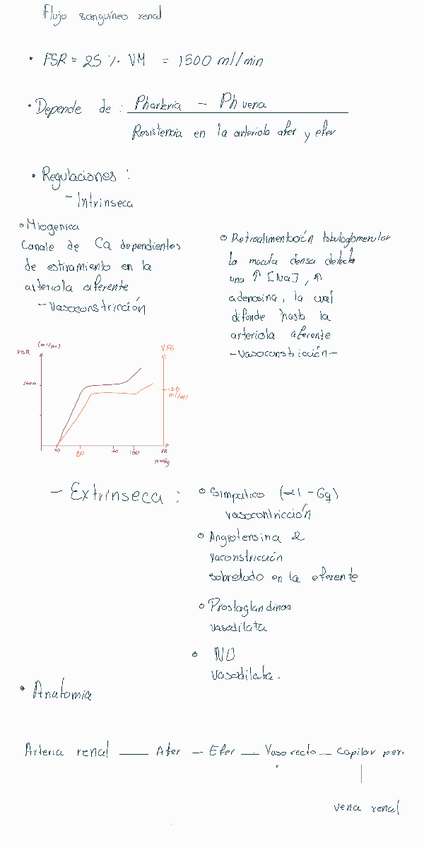 Flujo sanguíneo renal
• FSR = 25 % VM = 1500 ml/min
• Depende de : Pharteria - Ph vena
Resistencia en la arteriola afer y efer
• Regulaciones :
- Intrinseca
Miogenica
Canale de Ca dependientes
de estiramiento en la
arteriola aferente
- Vasoconstricción
Retroalimentación tubuloglomerular
la macula densa detecta
una ↑ [Na], ↑
adenosina, la cual
difunde hasta la
arteriola aferente
- Vasoconstricción -
FSR (ml/min)
VFG
80
mmHg
- Extrinseca :
Simpatico (α1 - Gq)
vasocontricción
Angiotensina 2
vaconstricción
sobretodo en la eferente
Prostaglandinas
vasodilata
NO
Vasodilata.
• Anatomia
Arteria renal — Afer — Efer — Vaso recto — Capilar per.
vena renal